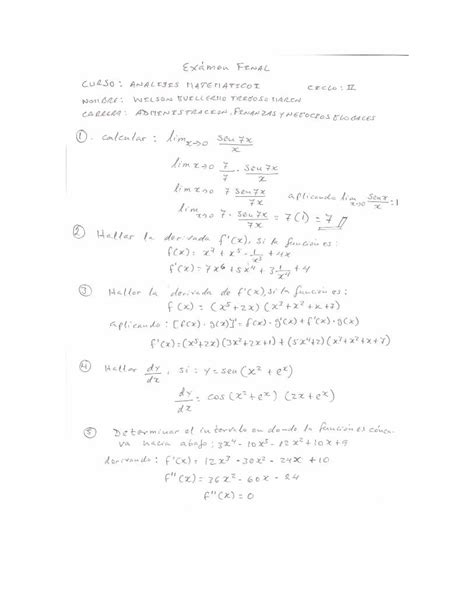 Exámen Final
CURSO: ANALISIS MATEMATICO I CICLO: II
NOMBRE: WILSON GUILLERMO
CARRERA: ADMINISTRACION, FINANZAS Y NEGOCIOS GLOBALES
① Calcular: lim x→0 sen 7x / x
lim x→0 7/7 · sen 7x / x
lim x→0 7 sen 7x / 7x
aplicando lim x→0 sen x / x = 1
lim x→0 7 · sen 7x / 7x = 7(1) = 7
② Hallar la derivada f'(x), si la funciones:
f'(x) = 7x⁶ + 5x⁴ + 3 1/x⁴ + 4
③ Hallar la derivada de f'(x), si la funciones:
f(x) = (x⁵ + 2x) (x³ + x² + x + 7)
aplicando: [f(x) · g(x)]' = f(x) · g'(x) + f'(x) · g(x)
f'(x) = (x⁵ + 2x) (3x² + 2x + 1) + (5x⁴ + 2) (x³ + x² + x + 7)
④ Hallar dy/dx, si: y = sen (x² + eˣ)
dy/dx = cos (x² + eˣ) (2x + eˣ)
⑤ Determinar el intervalo en donde la funciones cónca-
va hacia abajo: 3x⁴ - 10x³ - 12x² + 10x + 9
derivando: f'(x) = 12x³ - 30x² - 24x + 10
f''(x) = 36x² - 60x - 24
f''(x) = 0